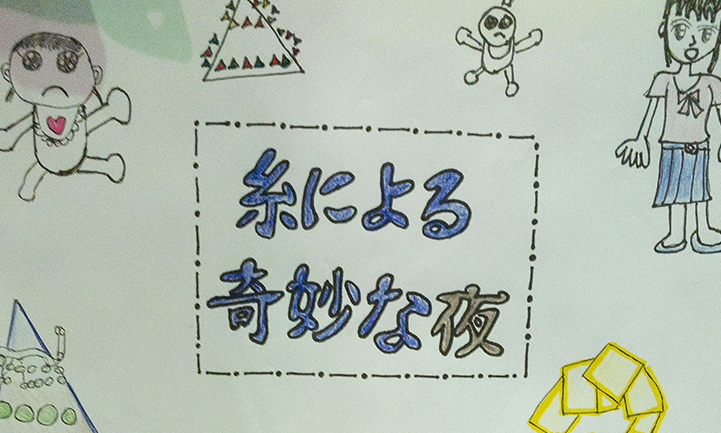 糸による
奇妙な夜